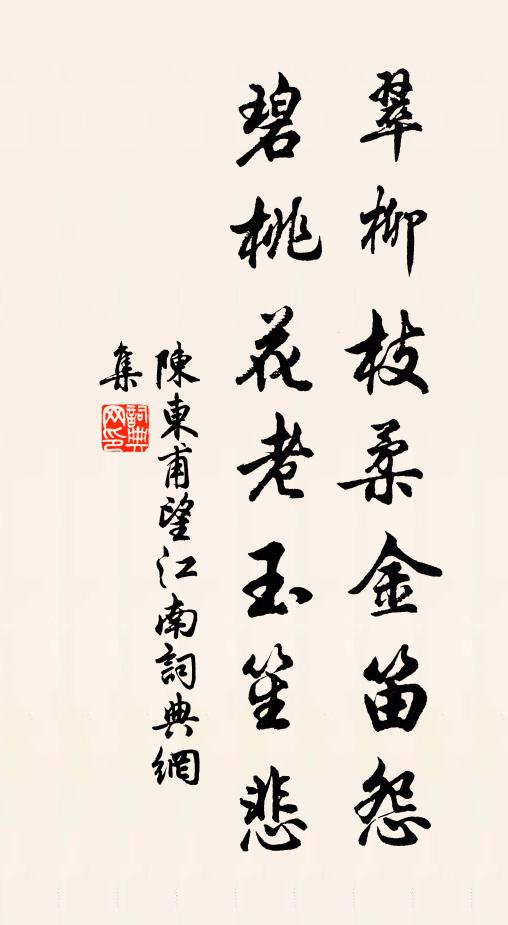 翠柳枝柔金笛怨
碧桃花老玉笙悲
陳東甫望江南詞典網
集
詞典網印